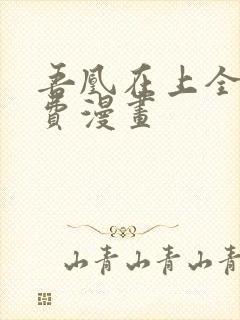 吾凰在上全
費漫畫
山青山青山青